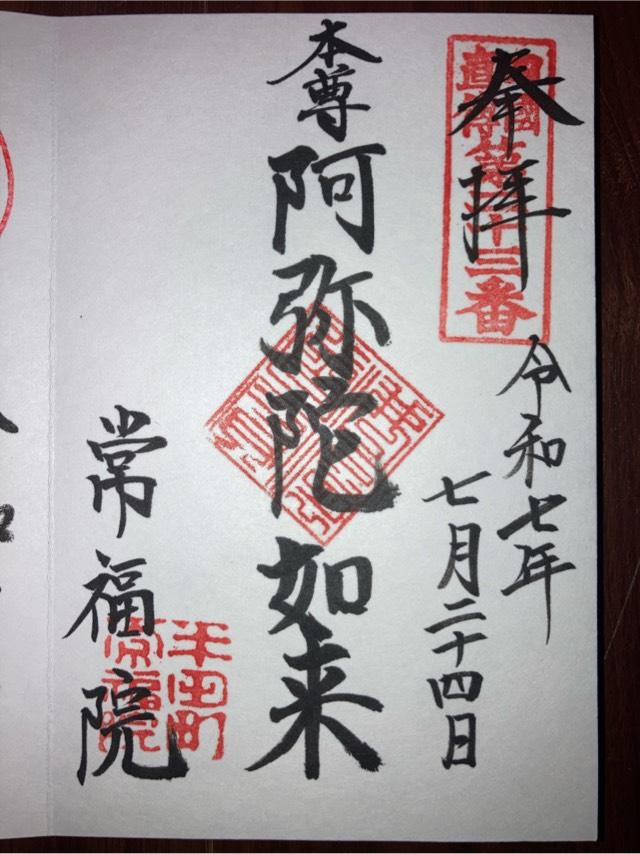 奉拝
十三番
令和七年
七月二十四日
本尊 阿弥陀如来
常福院
半田町
常福院